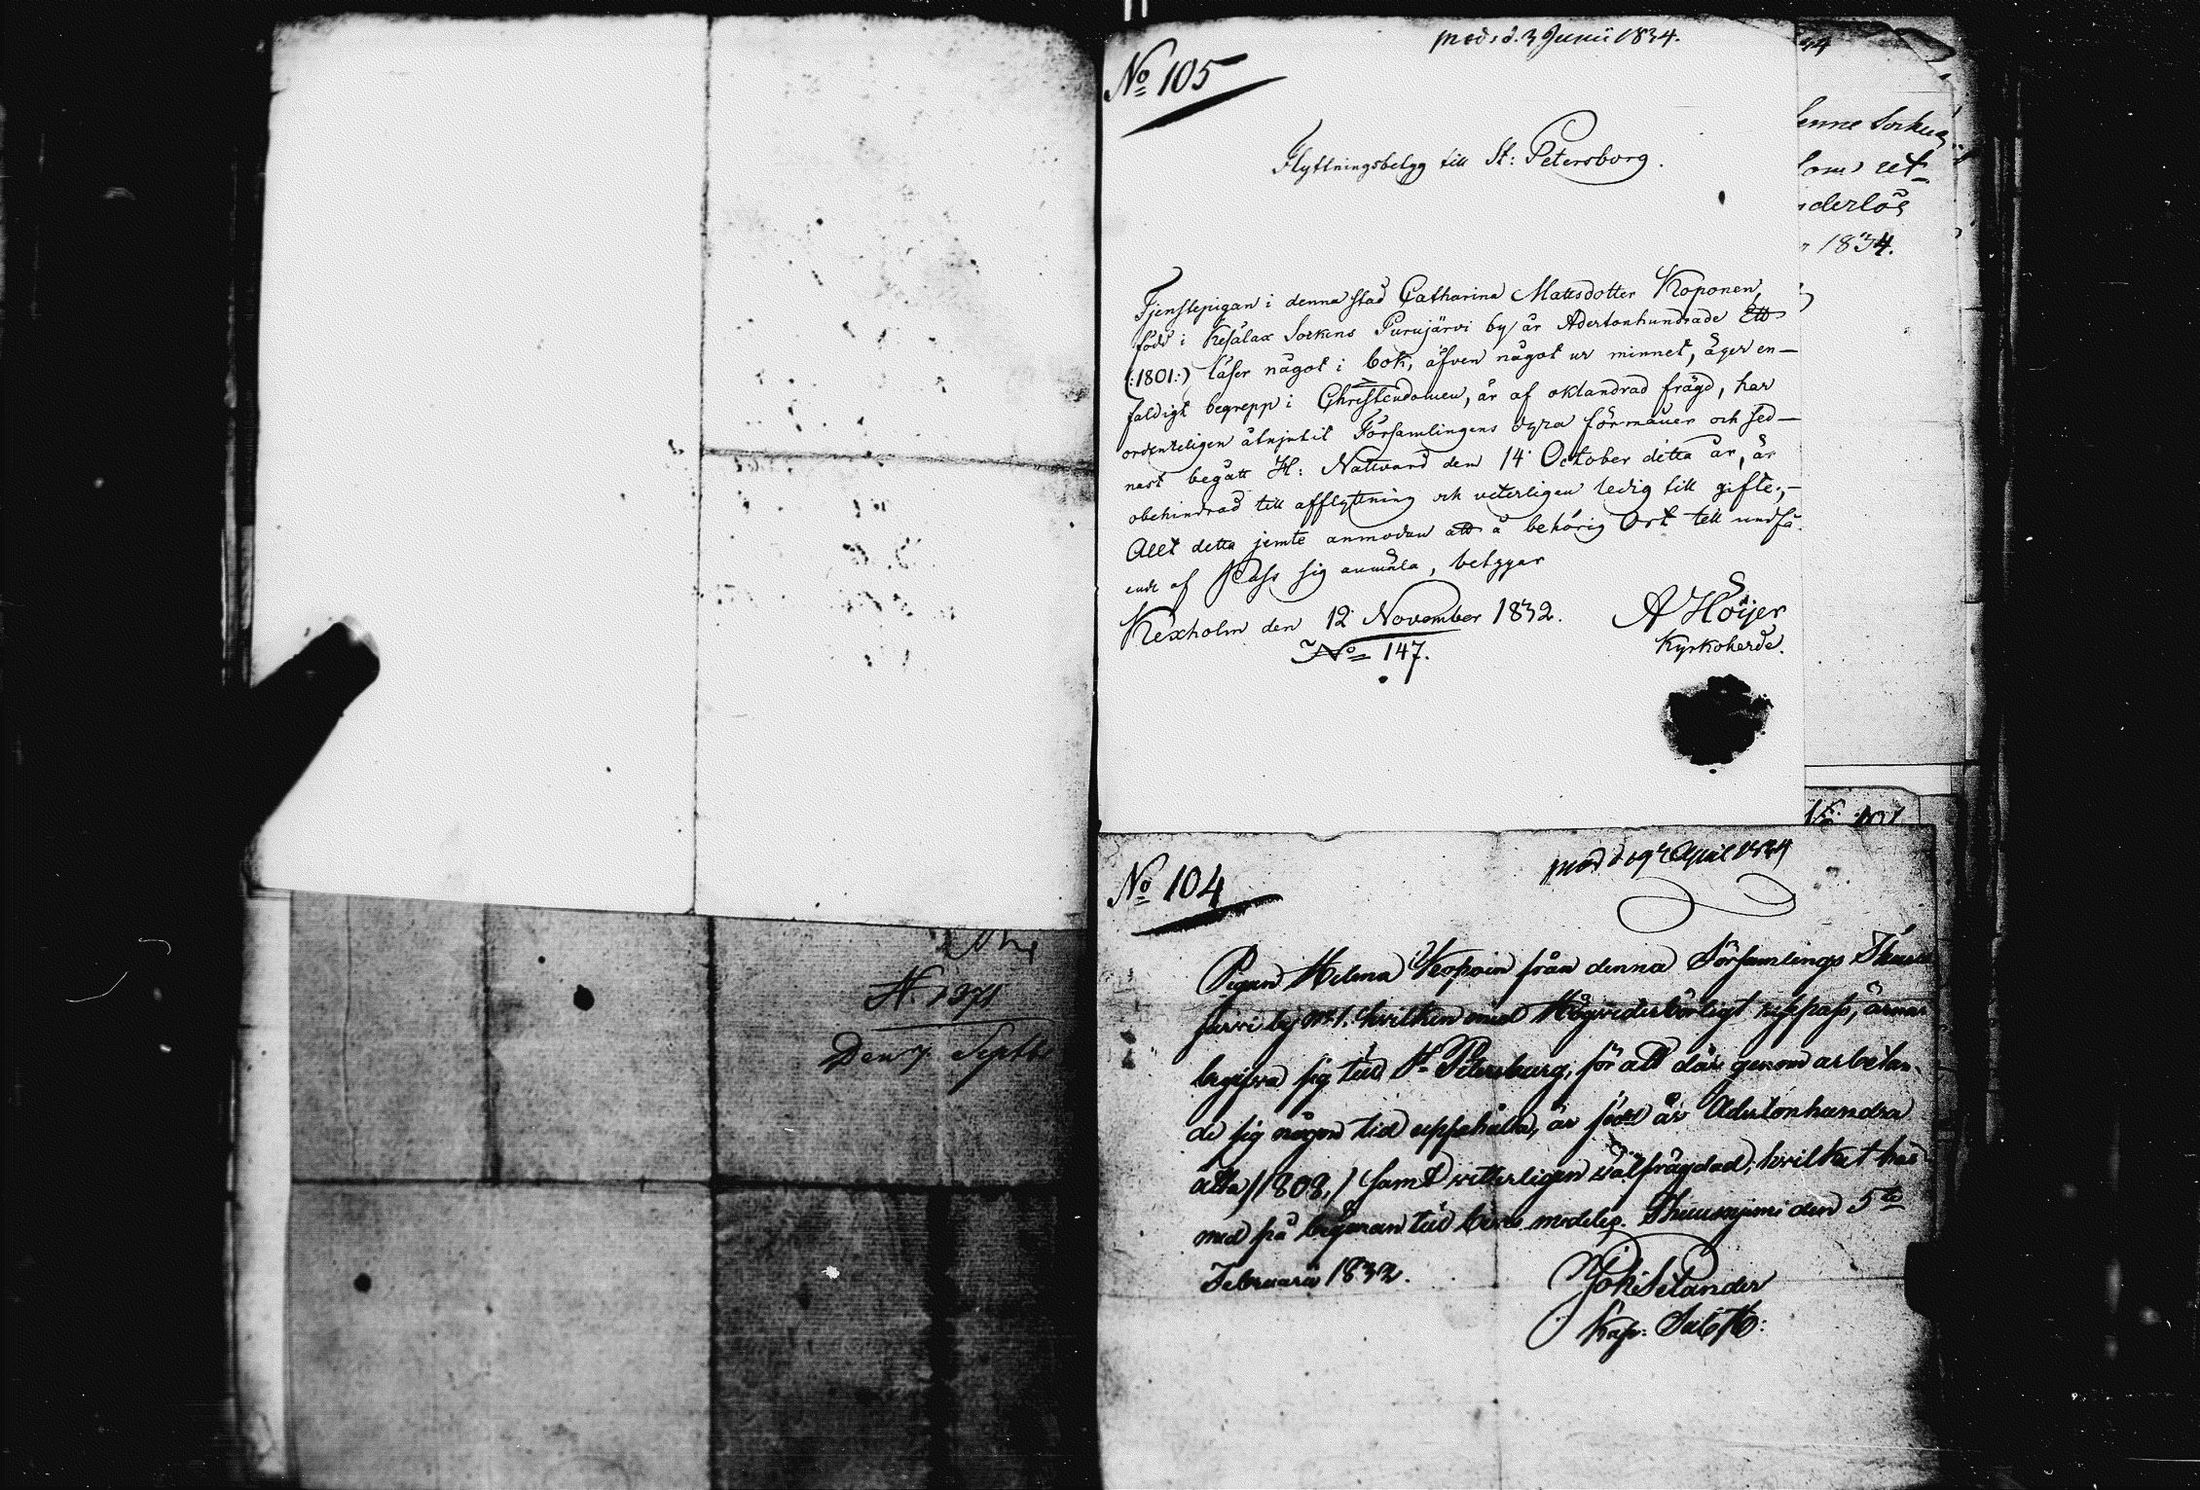 N 1371
Den 7 Septbr
meds d. 3 Junii 1834.
No 105
Flyttningsbetyg till St: Petersborg.
Tjenstepigan i denna stad Catharina Mattsdotter Koponen,
född i Kesälax Sockens Purujärvi by år Adertonhundrade Ett
(:1801:) läser något i bok, äfven något ur minnet, äger en-
faldigt begrepp i Christendomen, är af oklandrad frägd, har
ordenteligen åtnjutit Församlingens dyra förmåner och sed-
nast begått H: Nattvard den 14 October detta år, är
obehindrad till afflyttning och veterligen ledig till gifte;-
Allt detta jemte anmodan att å behörig Ort till undfå-
ende af Pass sig anmäla, betygar
Kexholm den 12 November 1832.
A Höijer
Kyrkoherde.
No 147.
34
denne Socken
som
1834.
No 104
med d 19 April 1834
Pigan Helena Kopoin från denna Församlings
järvi by No 1. hvilken med Högvederbörligt respass, ärnar
begifva sig till St Petersburg, för att där genom arbetan-
de sig någon tid uppehålla, är född år Adertonhundra
åtta /1808,/ samt vitterligen välfrägdad, hvilket här
med på begäran till bevis meddelas. den 5te
Februarii 1832.
Joh: Selander
Kap: